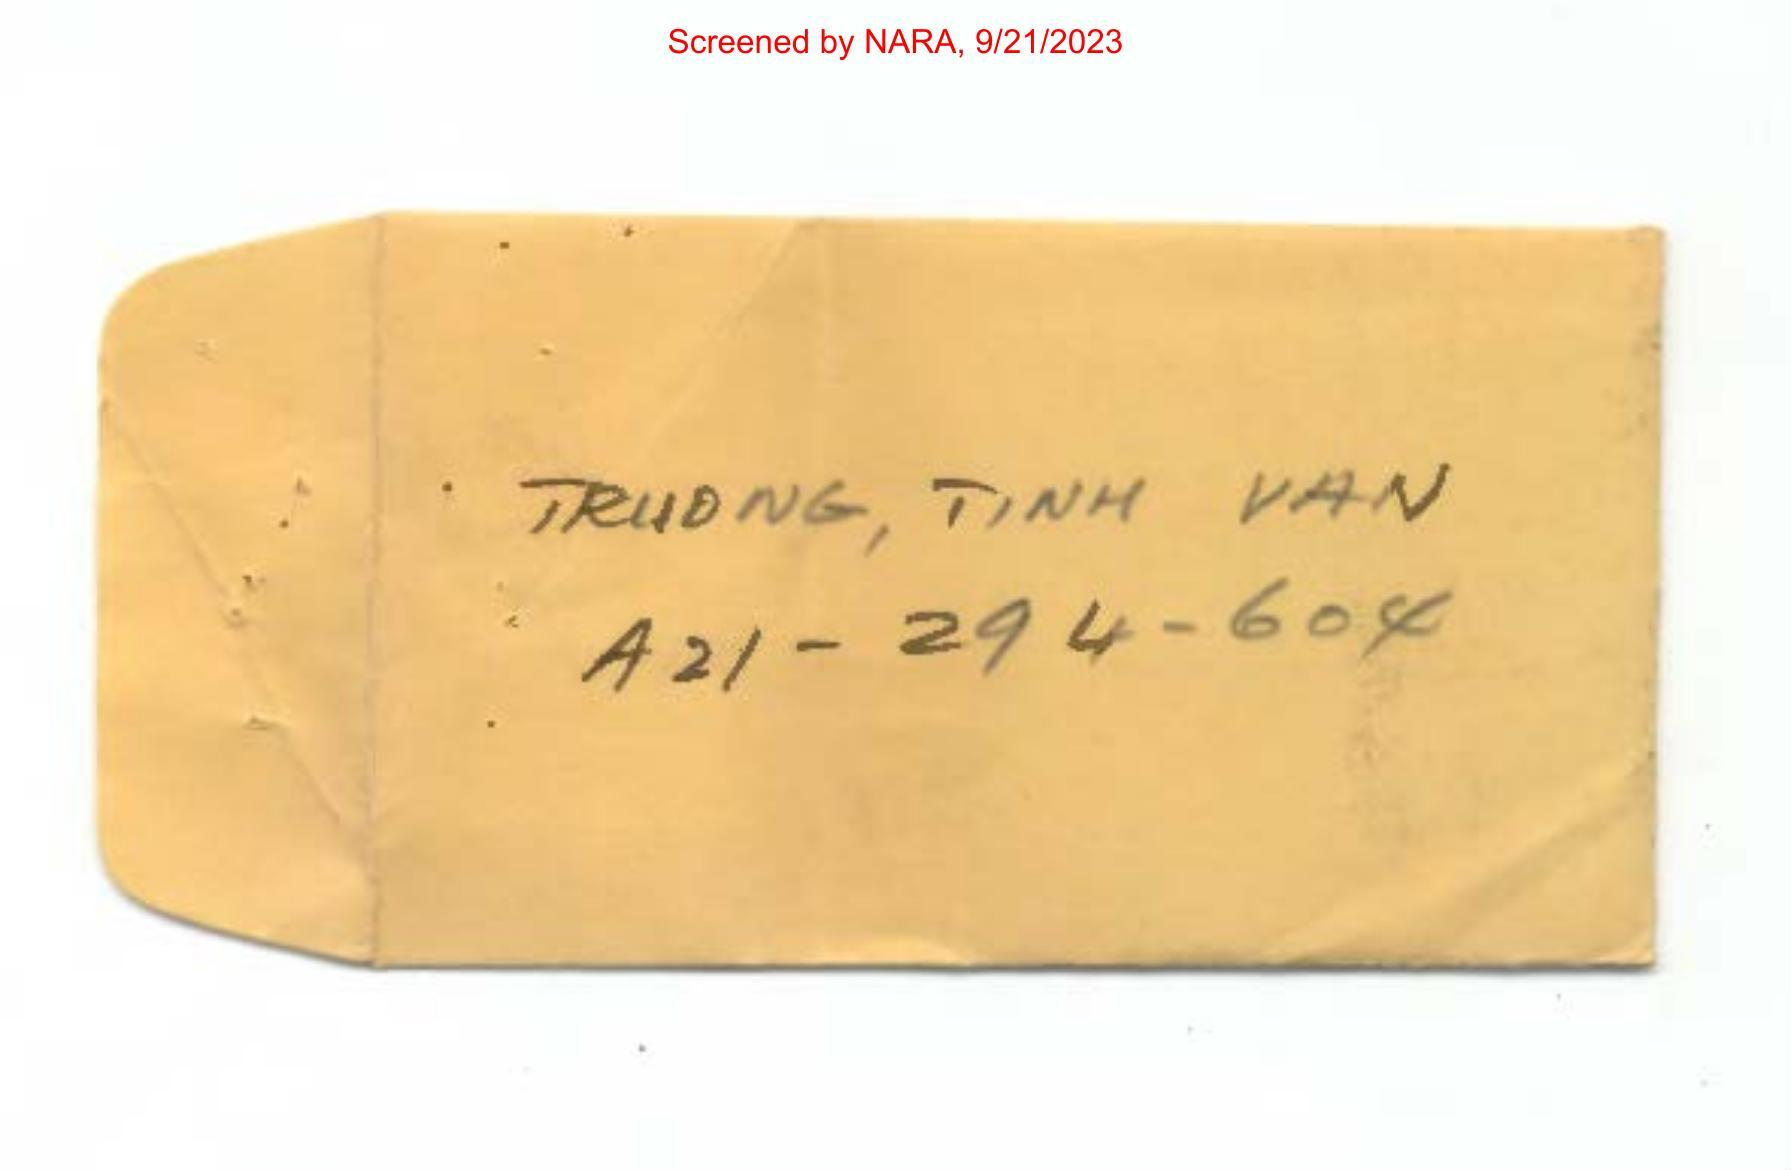 Screened by NARA, 9/21/2023
TRUONG, TINH VAN
A21-294-604